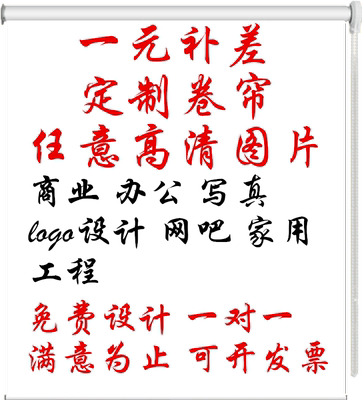 一元补差
定制卷帘
任意高清图片
商业 办公 写真
logo设计 网吧 家用
工程
免费设计 一对一
满意为止 可开发票